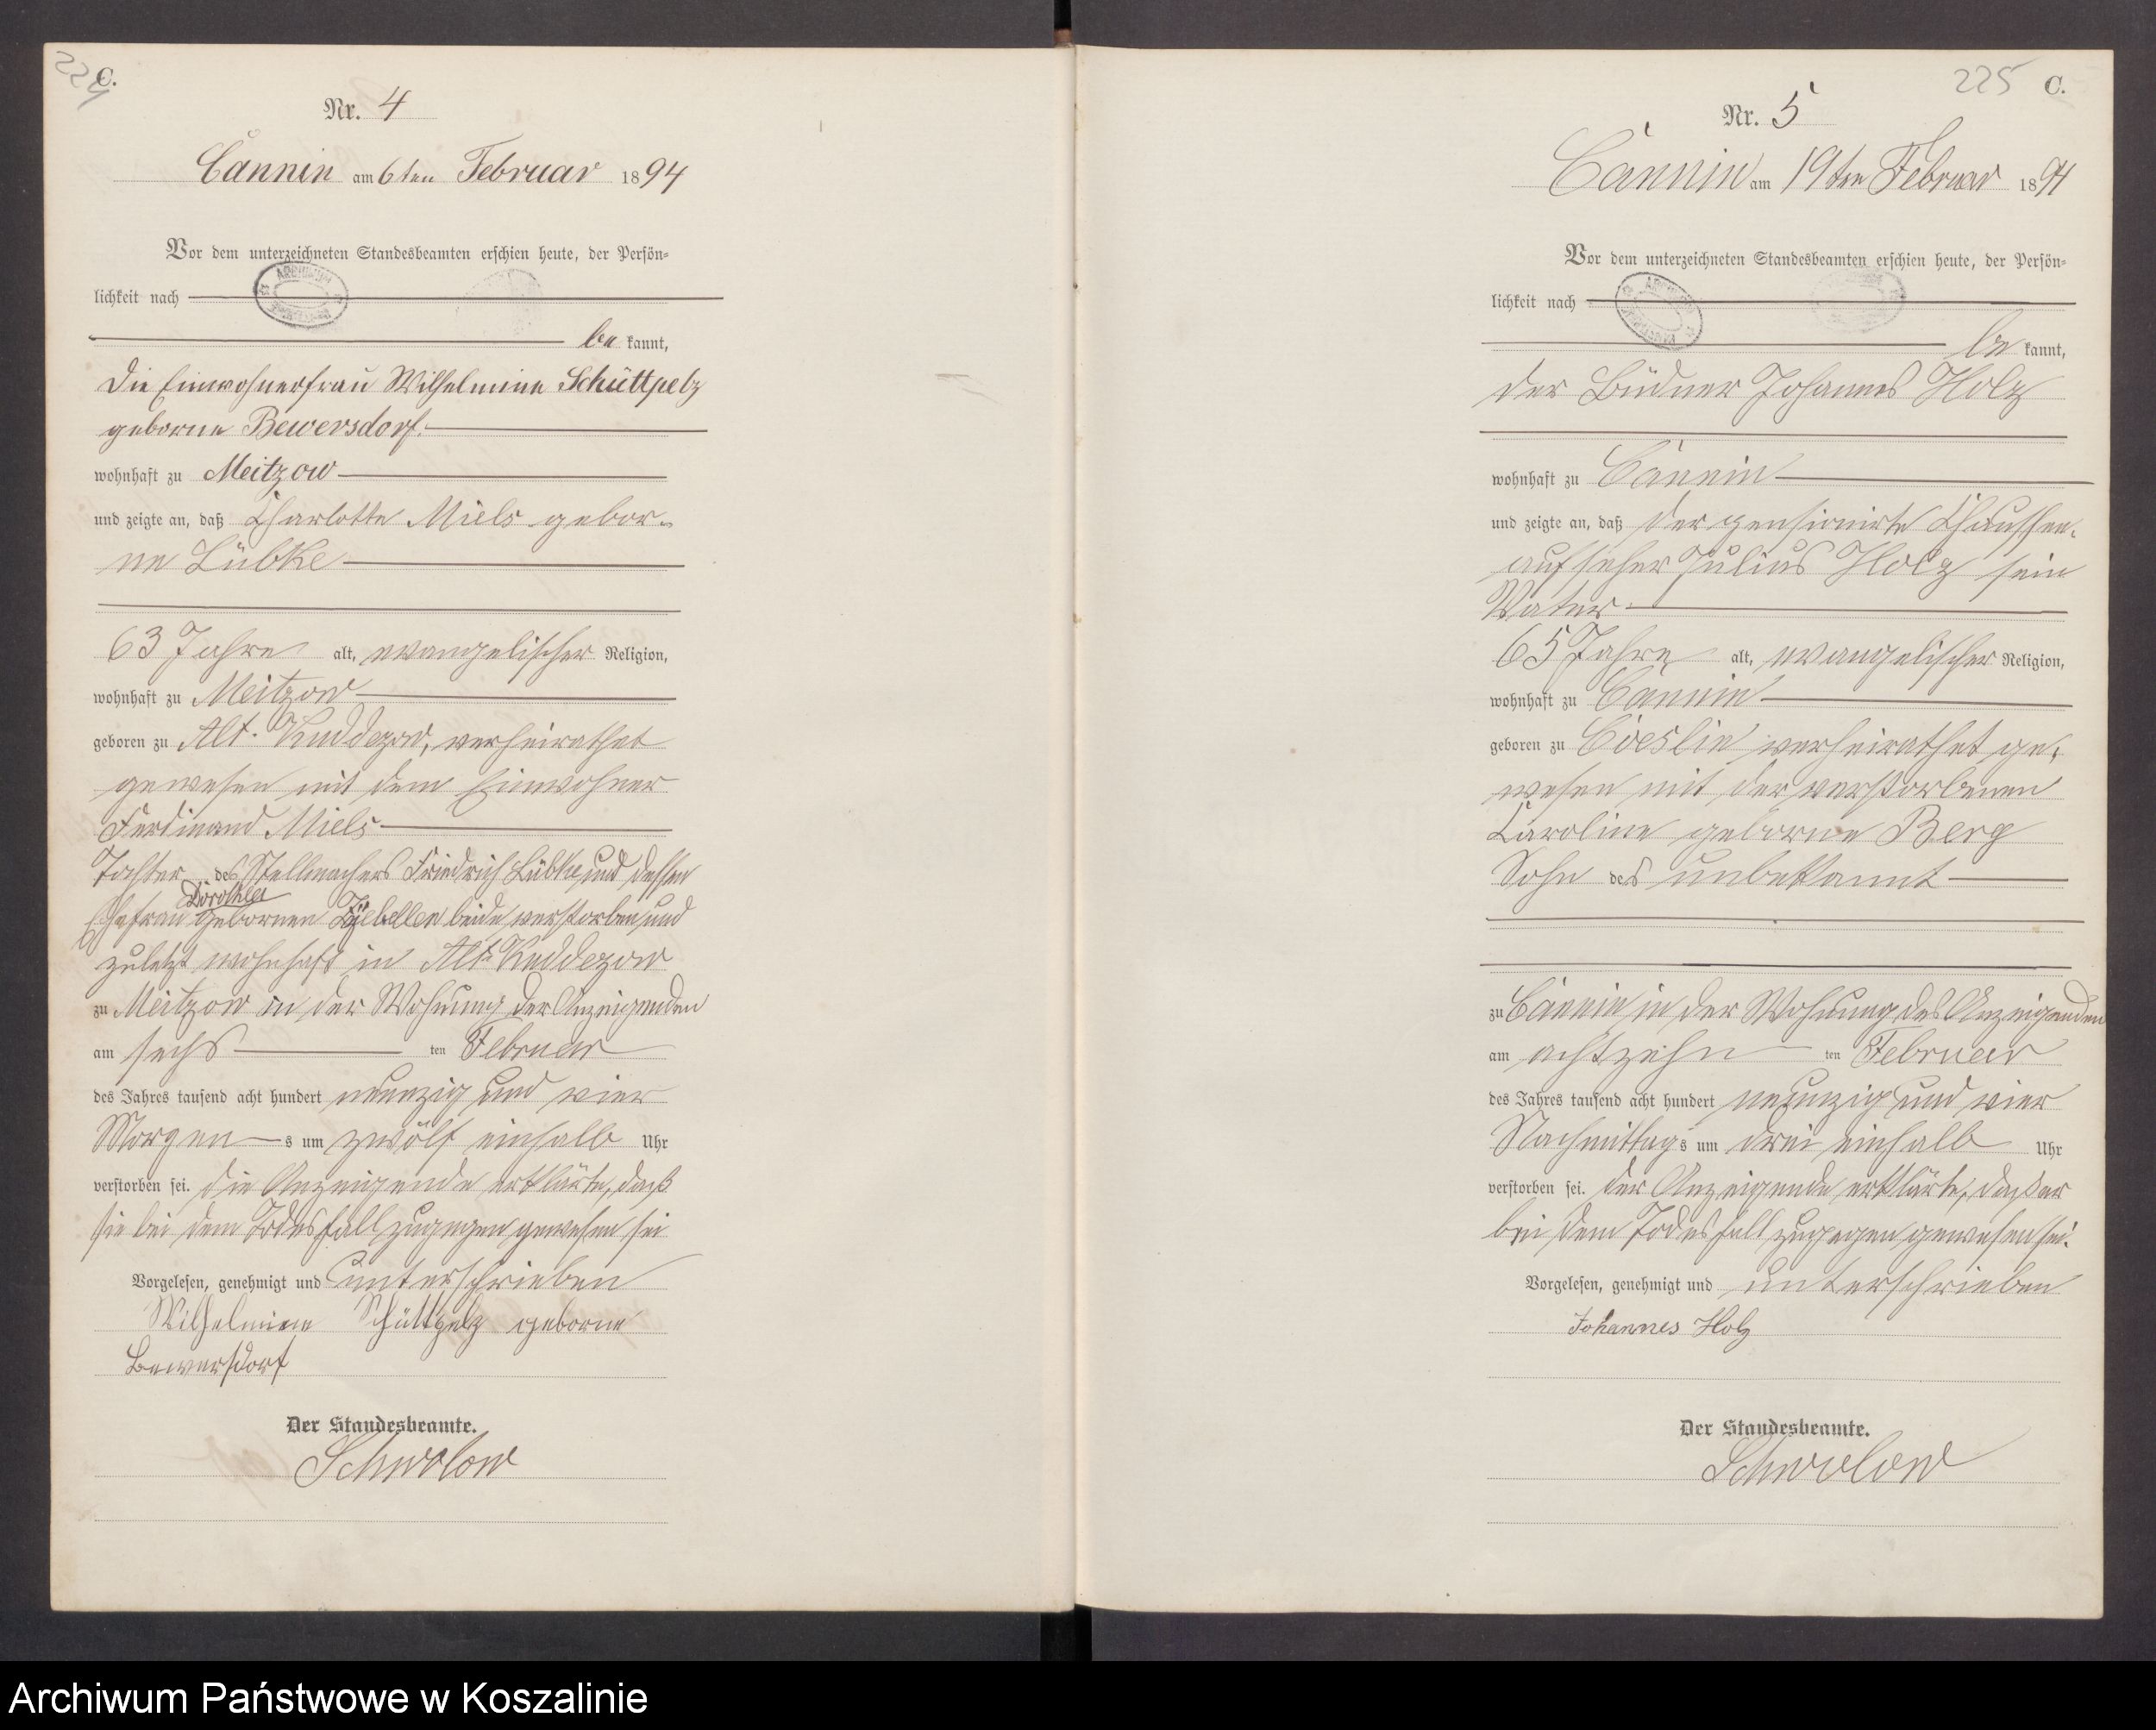 224
C.
Nr. 4
Cannin am 6ten Februar 1894
Vor dem unterzeichneten Standesbeamten erschien heute, der Persön-
lichkeit nach
be kannt,
die Einwohnerfrau Wilhelmine Schüttpelz
geborne Bewersdorf.
wohnhaft zu Meitzow
und zeigte an, daß Charlotte Miels gebor-
ne Lübke
63 Jahre alt, evangelischer Religion,
wohnhaft zu Meitzow
geboren zu Alt-Kuddezow, verheirathet
gewesen mit dem Einwohner
Ferdinand Miels
Tochter des Stellmachers Friedrich Lübke und dessen
Dorothea
Ehefrau gebornen beide verstorben und
zuletzt wohnhaft in Alt-Kuddezow
zu Meitzow in der Wohnung der Anzeigenden
am sechs ten Februar
des Jahres tausend acht hundert neunzig und vier
Morgen s um zwölf einhalb Uhr
verstorben sei. die Anzeigende erklärte, daß
sie bei dem Todesfall zugegen gewesen sei
Vorgelesen, genehmigt und unterschrieben
Wilhelmine Schüttpelz geborne
Bewersdorf
Der Standesbeamte.
Schwolow
225 C.
Nr. 5
Cannin am 19ten Februar 1894
Vor dem unterzeichneten Standesbeamten erschien heute, der Persön-
lichkeit nach
be kannt,
der Büdner Johannes Holz
wohnhaft zu Cannin
und zeigte an, daß der pensionirte Chaussee-
aufseher Julius Holz sein
Vater
65 Jahre alt, evangelischer Religion,
wohnhaft zu Cannin
geboren zu Coeslin verheirathet ge-
wesen mit der verstorbenen
Caroline geborne Berg
Sohn des unbekannt
zu Cannin in der Wohnung des Anzeigenden
am achtzehn ten Februar
des Jahres tausend acht hundert neunzig und vier
Nachmittag s um drei einhalb Uhr
verstorben sei. der Anzeigende erklärte, daß er
bei dem Todesfall zugegen gewesen sei.
Vorgelesen, genehmigt und unterschrieben
Johannes Holz
Der Standesbeamte.
Schwolow
Archiwum Państwowe w Koszalinie